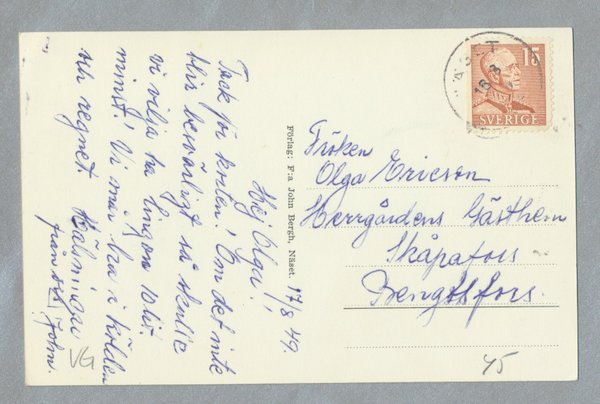 Hej Olga! 17/8 49.
Tack för kortet! Om det inte
blir besvärligt så skulle
vi vilja ha lingon 10 lit.
minst! Vi mår bra i kölden
och regnet. Hälsningar
från oss John.
VG
Förlag: F:a John Bergh, Näset.
15
SVERIGE
Fröken
Olga Ericson
Herrgårdens Gästhem
Skåpafors
Bengtsfors.
45